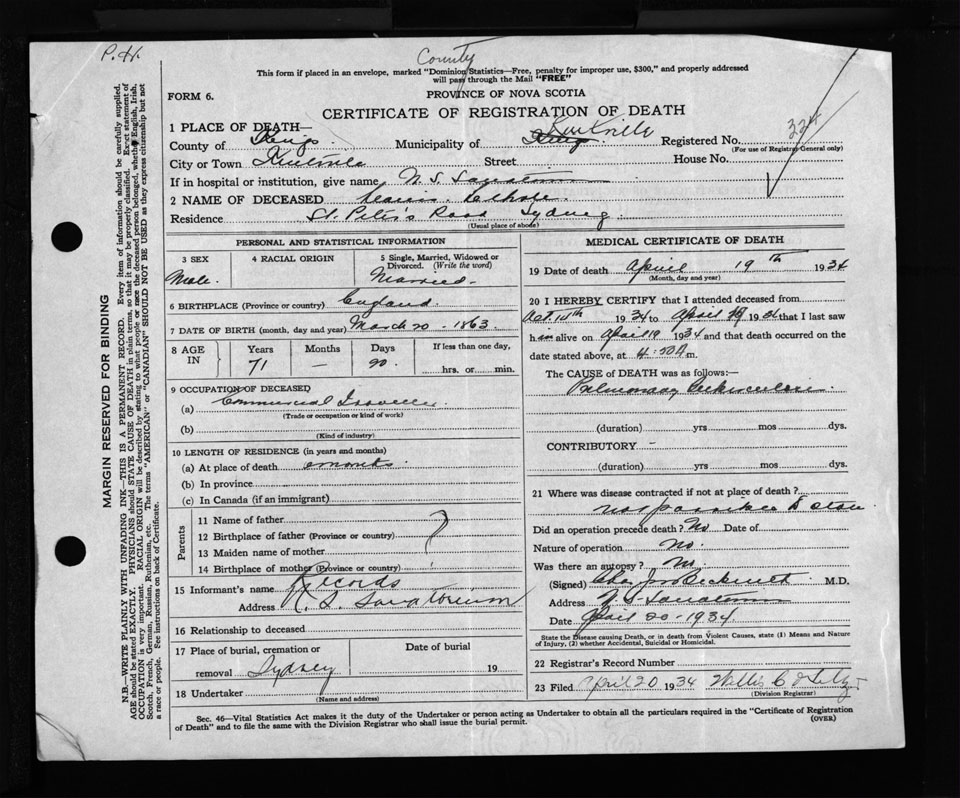 P.H.
County
This form if placed in an envelope, marked "Dominion Statistics—Free, penalty for improper use, $300," and properly addressed
will pass through the Mail "FREE"
FORM 6.
PROVINCE OF NOVA SCOTIA
CERTIFICATE OF REGISTRATION OF DEATH
334
1 PLACE OF DEATH—
Kentville
County of Kings Municipality of Kings Registered No.
(For use of Registrar General only)
City or Town Kentville Street House No.
If in hospital or institution, give name N. S. Sanatorium
2 NAME OF DECEASED
Residence St. Peter's Road Sydney
(Usual place of abode)
PERSONAL AND STATISTICAL INFORMATION
3 SEX 4 RACIAL ORIGIN 5 Single, Married, Widowed or
Divorced. (Write the word)
Male. Married.
6 BIRTHPLACE (Province or country) England.
7 DATE OF BIRTH (month, day and year) March 20 - 1863
8 AGE IN Years Months Days If less than one day,
71 — 90. hrs. or min.
9 OCCUPATION OF DECEASED
(a) Commercial Traveller
(Trade or occupation or kind of work)
(b)
(Kind of industry)
10 LENGTH OF RESIDENCE (in years and months)
(a) At place of death months.
(b) In province
(c) In Canada (if an immigrant)
Parents
11 Name of father
12 Birthplace of father (Province or country) ?
13 Maiden name of mother
14 Birthplace of mother (Province or country)
15 Informant's name Records
Address N. S. Sanatorium
16 Relationship to deceased
17 Place of burial, cremation or Date of burial
removal Sydney 19
18 Undertaker
(Name and address)
MEDICAL CERTIFICATE OF DEATH
19 Date of death April 19th 1934
(Month, day and year)
20 I HEREBY CERTIFY that I attended deceased from
Oct. 14th 1934 to April 19 1934 that I last saw
him alive on April 19 1934 and that death occurred on
date stated above, at m.
The CAUSE of DEATH was as follows:—
Pulmonary Tuberculosis
(duration) yrs mos dys.
CONTRIBUTORY —
(duration) yrs mos dys.
21 Where was disease contracted if not at place of death?
not possible to state
Did an operation precede death? No Date of
Nature of operation no.
Was there an autopsy? No.
(Signed) Beckwith M.D.
Address N. S. Sanatorium
Date April 20 - 1934
State the Disease causing Death, or in death from Violent Causes, state (1) Means and Nature
of Injury, (2) whether Accidental, Suicidal or Homicidal.
22 Registrar's Record Number
23 Filed April 20 1934
(Division Registrar)
Sec. 46—Vital Statistics Act makes it the duty of the Undertaker or person acting as Undertaker to obtain all the particulars required in the "Certificate of Registration
of Death" and to file the same with the Division Registrar who shall issue the burial permit.
(OVER)
MARGIN RESERVED FOR BINDING
N.B.—WRITE PLAINLY WITH UNFADING INK—THIS IS A PERMANENT RECORD. Every item of information should be carefully supplied.
AGE should be stated EXACTLY. PHYSICIANS should STATE CAUSE OF DEATH in plain terms, so that it may be properly classified. Exact statement of
OCCUPATION is very important. RACIAL ORIGIN will be described by stating to what people or race the deceased person belonged, whether English, Irish,
Scotch, French, German, Russian, Ruthenian, etc. The terms "AMERICAN" or "CANADIAN" SHOULD NOT BE USED as they express citizenship but not
a race or people. Fee instructions on back of Certificate.